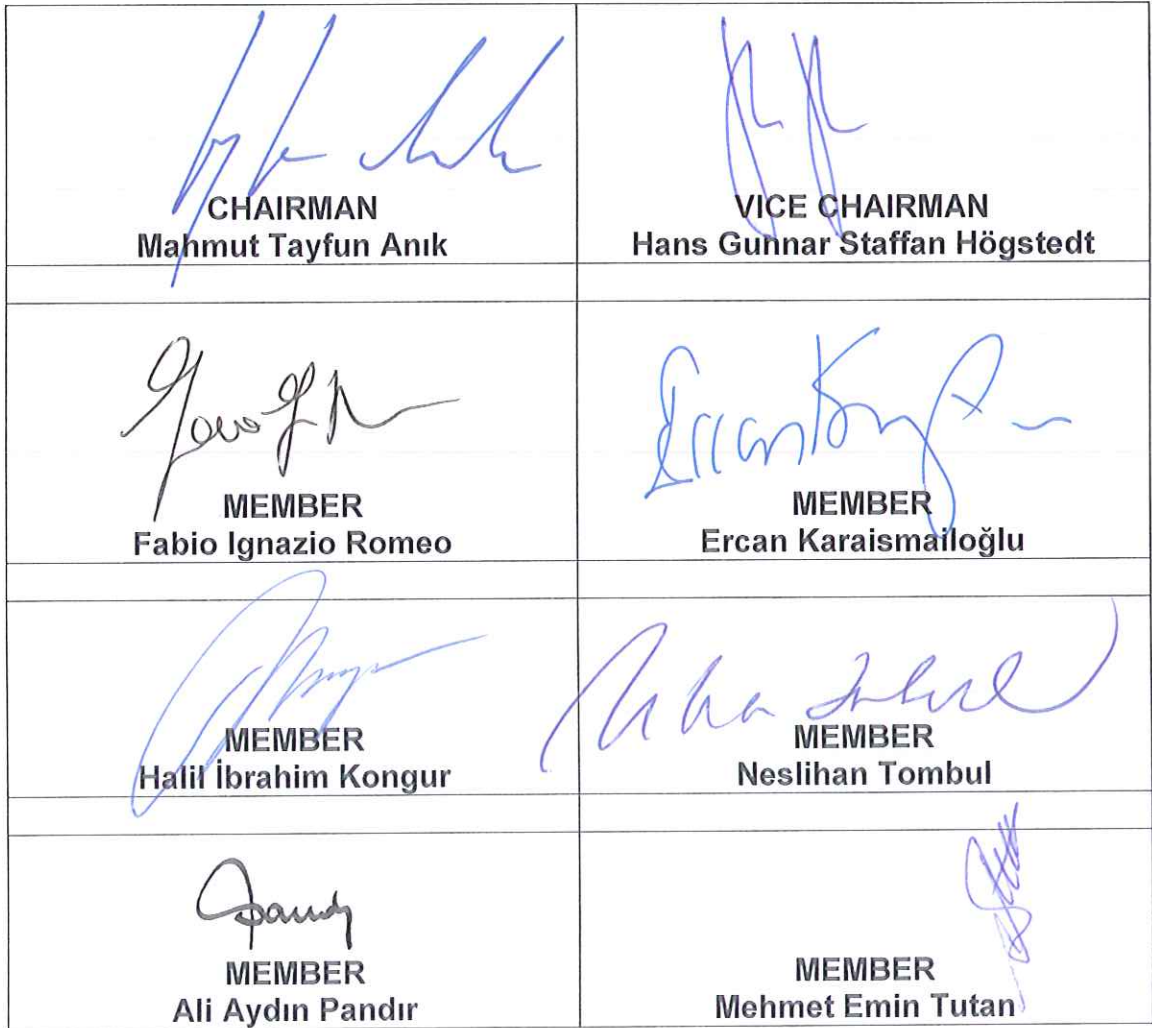 CHAIRMAN
Mahmut Tayfun Anık
VICE CHAIRMAN
Hans Gunnar Staffan Högstedt
MEMBER
Fabio Ignazio Romeo
MEMBER
Ercan Karaismailoğlu
MEMBER
Halil İbrahim Kongur
MEMBER
Neslihan Tombul
MEMBER
Ali Aydın Pandır
MEMBER
Mehmet Emin Tutan